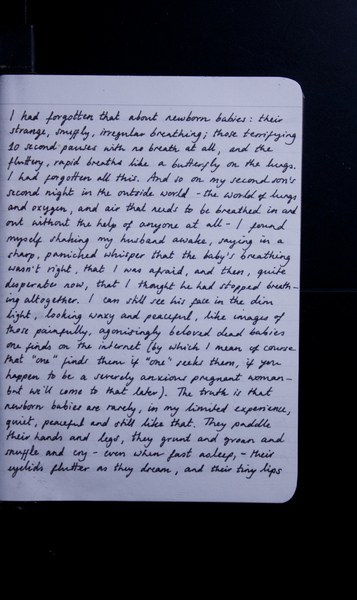 I had forgotten that about newborn babies: their
strange, snuffly, irregular breathing; those terrifying
10 second pauses with no breath at all, and the
fluttery, rapid breaths like a butterfly on the lungs.
I had forgotten all this. And so on my second son's
second night in the outside world - the world of lungs
and oxygen, and air that needs to be breathed in and
out without the help of anyone at all - I found
myself shaking my husband awake, saying in a
sharp, panicked whisper that the baby's breathing
wasn't right, that I was afraid, and then, quite
desperate now, that I thought he had stopped breath-
ing altogether. I can still see his face in the dim
light, looking waxy and peaceful, like images of
those painfully, agonisingly beloved dead babies
one finds on the internet (by which I mean of course
that "one" finds them if "one" seeks them, if you
happen to be a severely anxious pregnant woman -
but we'll come to that later). The truth is that
newborn babies are rarely, in my limited experience,
quiet, peaceful and still like that. They paddle
their hands and legs, they grunt and groan and
snuffle and cry - even when fast asleep, - their
eyelids flutter as they dream, and their tiny lips